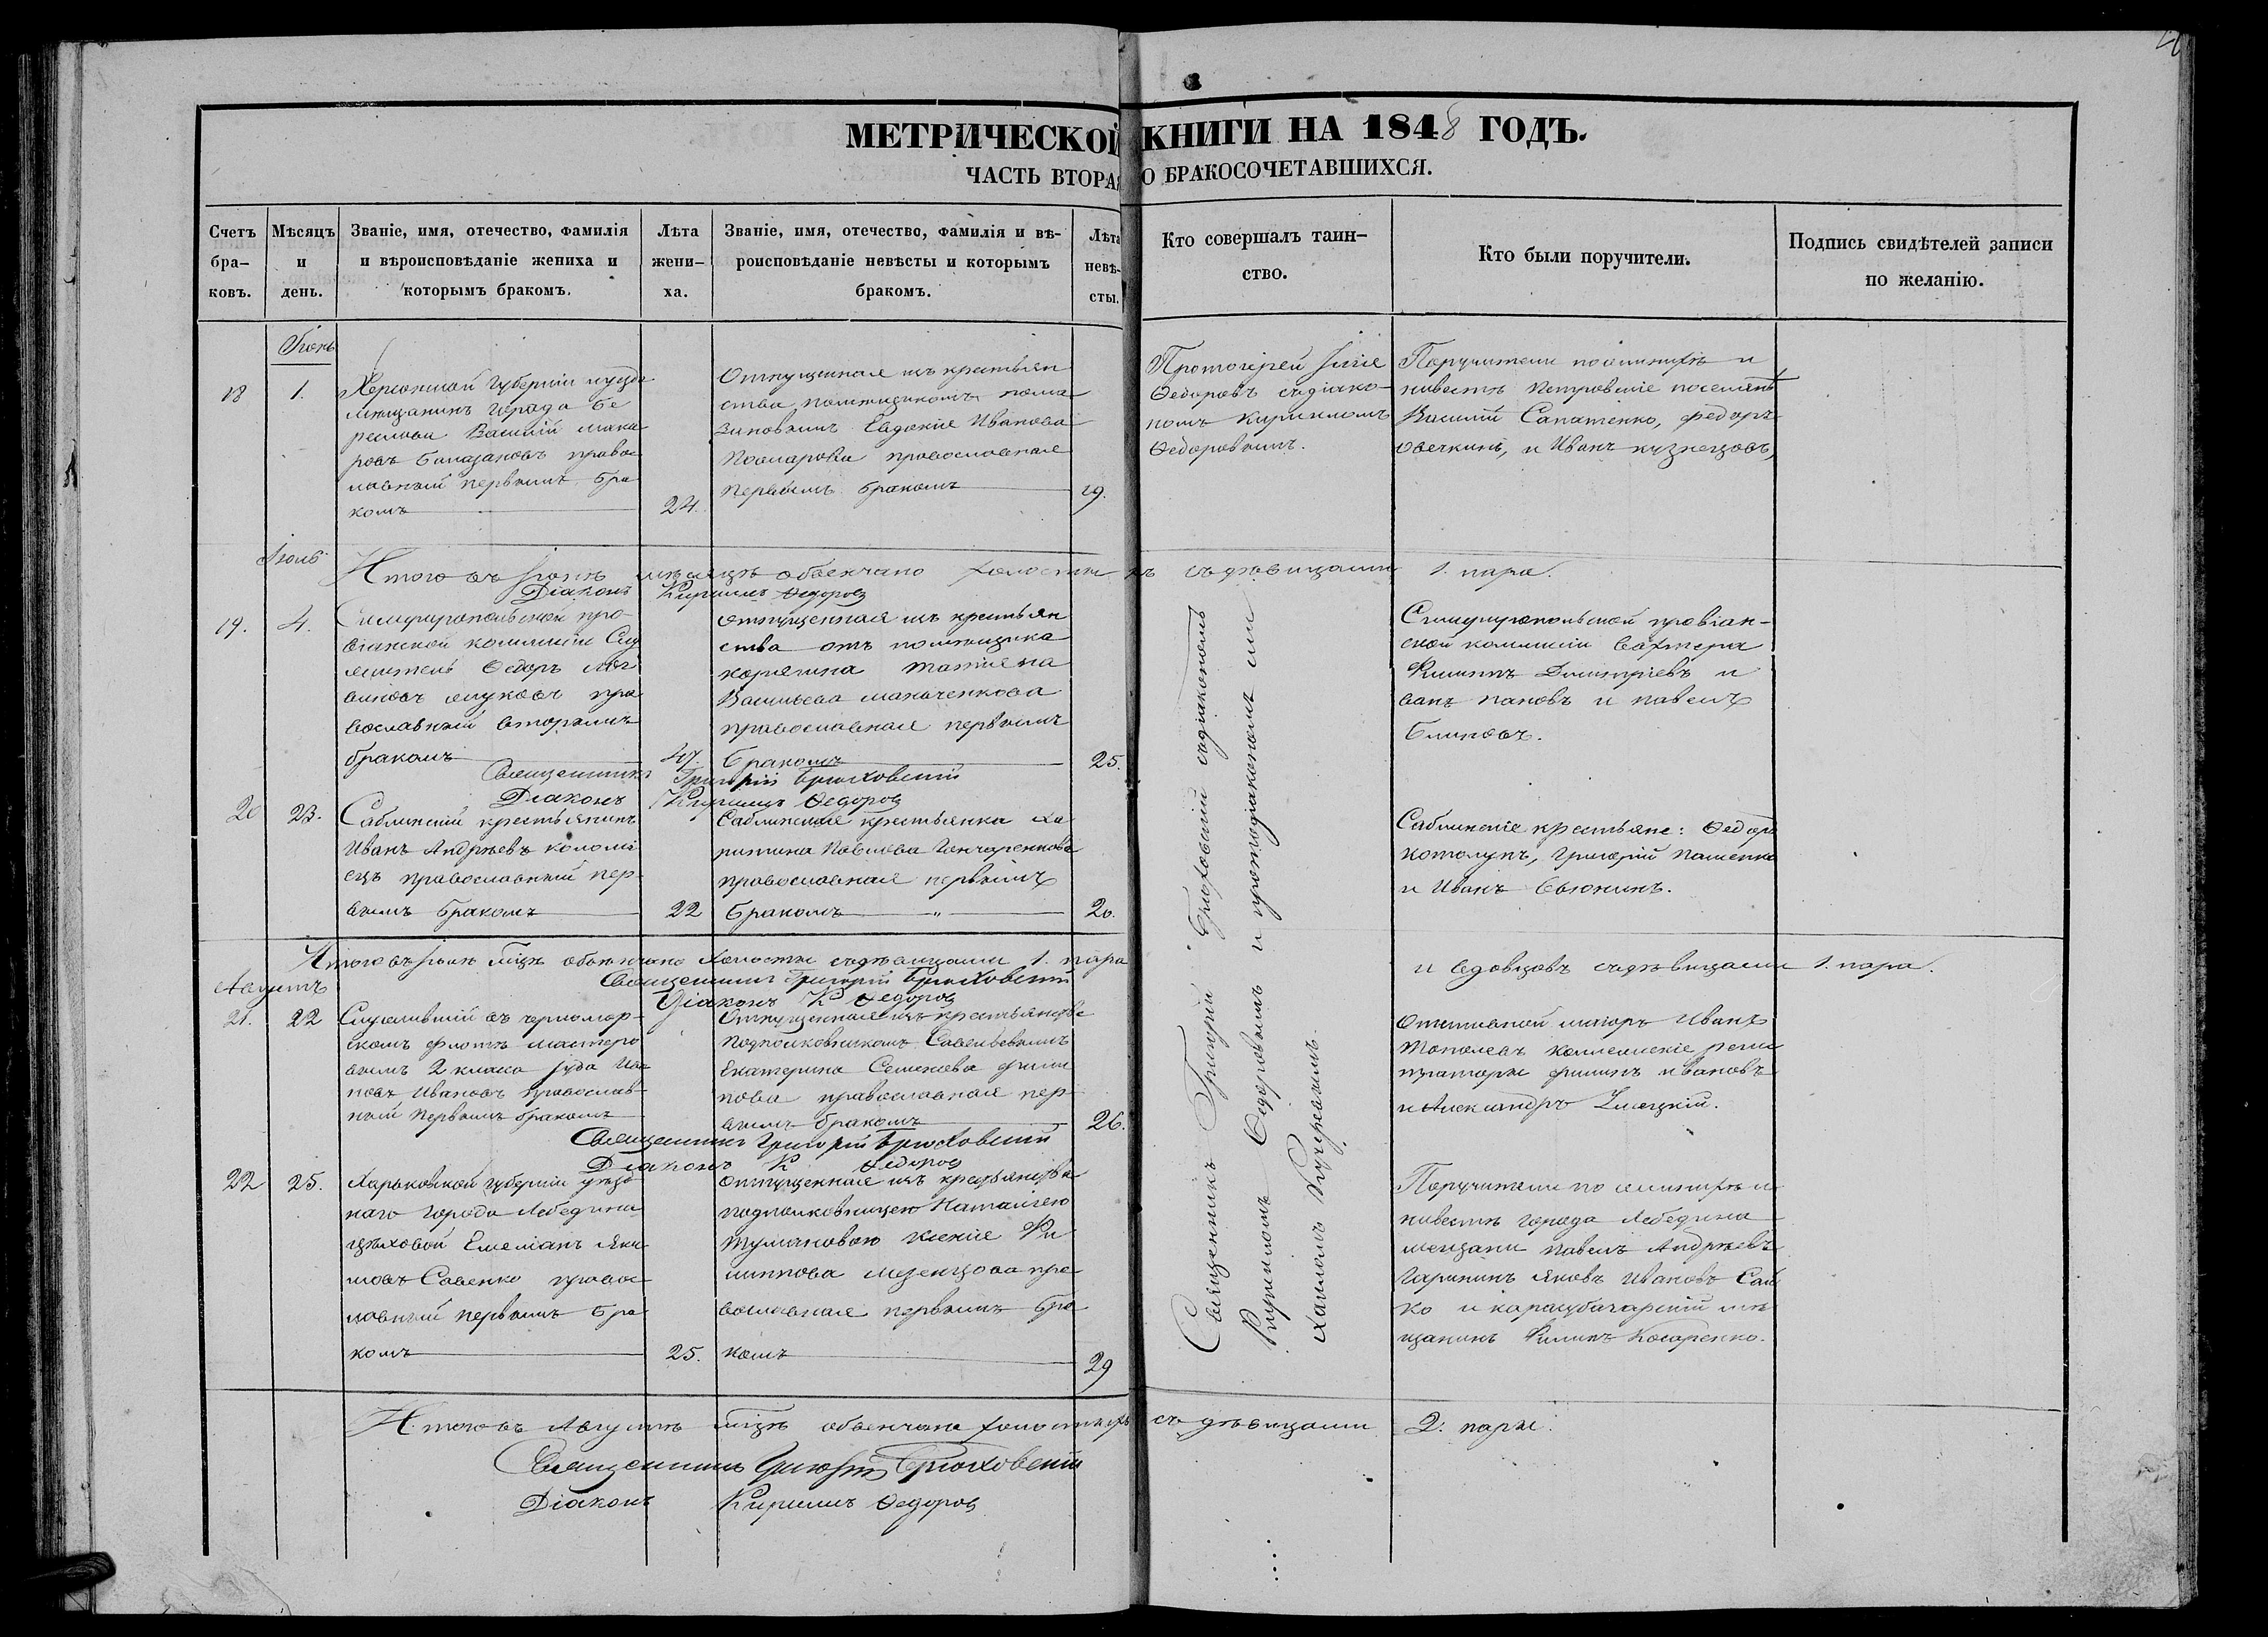 МЕТРИЧЕСКОЙ КНИГИ НА 1848 ГОДЪ.
ЧАСТЬ ВТОРАЯ О БРАКОСОЧЕТАВШИХСЯ.
Счетъ бра-
ковъ.
Мѣсяцъ
и
день.
Званіе, имя, отечество, фамилія
и вѣроисповѣданіе жениха и
которымъ бракомъ.
Лѣта
жени-
ха.
Званіе, имя, отечество, фамилія и вѣ-
роисповѣданіе невѣсты и которымъ
бракомъ.
Лѣта
невѣ-
сты.
Кто совершалъ таин-
ство.
Кто были поручители.
Подпись свидѣтелей записи
по желанію.
Іюнь
18
1.
Херсонской губерніи
мѣщанинъ города Бе
реслова Василій Мака
ровъ православ
ный первымъ бра
комъ
24.
Отпущенная изъ крестьян
ства помѣщикомъ
Евдокія Иванова
православная
первымъ бракомъ
19.
Протоіерей
Ѳедоровъ съ діако-
номъ Кирилломъ
Ѳедоровымъ.
Поручители по женихѣ и
невѣстѣ Петровскіе поселяне
Василій Сапатенко, Федоръ
Овечкинъ, и Иванъ Кузнецовъ,
Іюль
Итого въ Іюнѣ мѣсяцѣ обвѣнчано холостыхъ съ дѣвицами 1. пара.
Діаконъ Кириллъ Ѳедоровъ
19.
4.
Симферопольской про-
віанской коммисіи Слу
житель Ѳедоръ
пра
вославный вторымъ
бракомъ
47.
Отпущенная изъ крестьян
ства отъ помѣщика
Татіана
Васильева
православная первымъ
бракомъ
25.
Симферопольской провіан-
ской коммисіи Вахтера
Филиппъ Димитріевъ и
ванъ Пановъ и Павелъ
Блиновъ.
Священникъ Григорій Брюховскій
Діаконъ Кириллъ Ѳедоровъ
20
23.
Саблинскій крестьянинъ
Иванъ Андрѣевъ Коломі
ецъ православный пер
вымъ бракомъ
22
Саблинская крестьянка Ха
ритина Павлова Гончаренкова
православная первымъ
бракомъ
20.
Саблинскіе крестьяне: Ѳедоръ
Котолупъ, Григорій Пашенко
и Иванъ Вьюнинъ.
Итого въ Іюлѣ мѣцѣ обвѣнчано холостые съ дѣвицами 1. пара
и вдовцовъ съ дѣвицами 1. пара.
Священникъ Григорій Брюховскій
Діаконъ К Ѳедоровъ
Августъ
21.
22
Служившій въ черномор-
скомъ флотѣ мастеро
вымъ 2 класа Іуда Ива
новъ Ивановъ православ
ный первымъ бракомъ
Отпущенная изъ крестьянства
подполковникомъ Савельевымъ
Екатерина Семенова Фили
пова православная пер
вымъ бракомъ
26.
Отставной маіоръ Иванъ
Тополевъ коллежскіе реги
страторы Филипъ Ивановъ
и Александръ
Священникъ Григорій Брюховскій
Діаконъ К Ѳедоровъ
22
25.
Харьковской губерніи уѣзд
наго города Лебедина
цѣховой Емеліанъ Яки
мовъ Савенко правос
лавный первымъ бра
комъ
25.
Отпущенная изъ крестьянства
подполковницею Наталіею
Тумановою Ксенія Фи
липпова Мезенцова пра
вославная первымъ бра
комъ
29
Поручители по женихѣ и
невѣстѣ города Лебедина
мещани Павелъ Андрѣевъ
Гаринъ Яковъ Ивановъ Сай
ко и карасубазарскій мѣ
щанинъ Филипъ Косаренко.
Священникъ Григорій Брюховскій съ діакономъ
Кирилломъ Ѳедоровымъ и протодіакономъ ми
хаиломъ Кучеревымъ.
Итого въ Августѣ мѣцѣ обвѣнчано холостыхъ съ дѣвицами 2. пары.
Священникъ Григорій Брюховскій
Діаконъ Кириллъ Ѳедоровъ